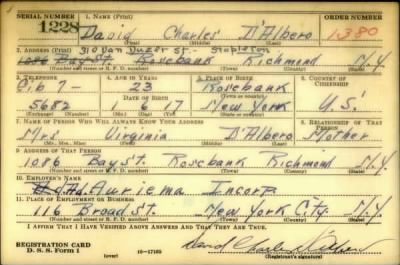 SERIAL NUMBER 1. NAME (Print) ORDER NUMBER
1228 David Charles D'Albero 1380
(First) (Middle) (Last)
310 Van Duzer St. - Stapleton
2. ADDRESS (Print)
1086 Bay St. Rosebank Richmond N.Y.
(Number and street or R. F. D. number) (Town) (County) (State)
3. TELEPHONE 4. AGE IN YEARS 5. PLACE OF BIRTH 6. COUNTRY OF CITIZENSHIP
Gib 7- 23 Rosebank
DATE OF BIRTH
5682 6 17 New York U.S.
(Mo.) (Day) (Yr.) (State or country)
7. NAME OF PERSON WHO WILL ALWAYS KNOW YOUR ADDRESS 8. RELATIONSHIP OF THAT PERSON
Mrs Virginia D'Albero Mother
(Mr., Mrs., Miss) (First) (Middle) (Last)
9. ADDRESS OF THAT PERSON
1086 Bay St. Rosebank Richmond N.Y.
(Number and street or R. F. D. number) (Town) (County) (State)
10. EMPLOYER'S NAME
Auriema Incorp
11. PLACE OF EMPLOYMENT OR BUSINESS
116 Broad St. New York City N.Y.
(Number and street or R. F. D. number) (Town) (County) (State)
I AFFIRM THAT I HAVE VERIFIED ABOVE ANSWERS AND THAT THEY ARE TRUE.
REGISTRATION CARD
D. S. S. Form 1 (over) 16-17105 David Charles D'Albero
(Registrant's signature)